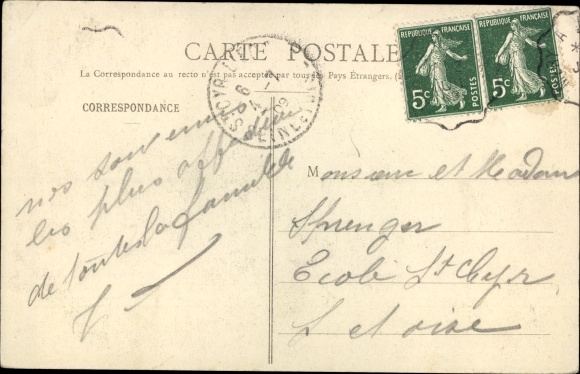 CARTE POSTALE
La Correspondance au recto n'est pas acceptée par tous les Pays Étrangers. (S
CORRESPONDANCE
REPUBLIQUE FRANÇAISE
5c
POSTES
REPUBLIQUE FRANÇAISE
5c
POSTES
ST CYR L'
SEINE ET
09
nos souvenirs
les plus affectueux
de toute la famille
Monsieur et Madame
Sprenger
Ecole St Cyr
S et oise